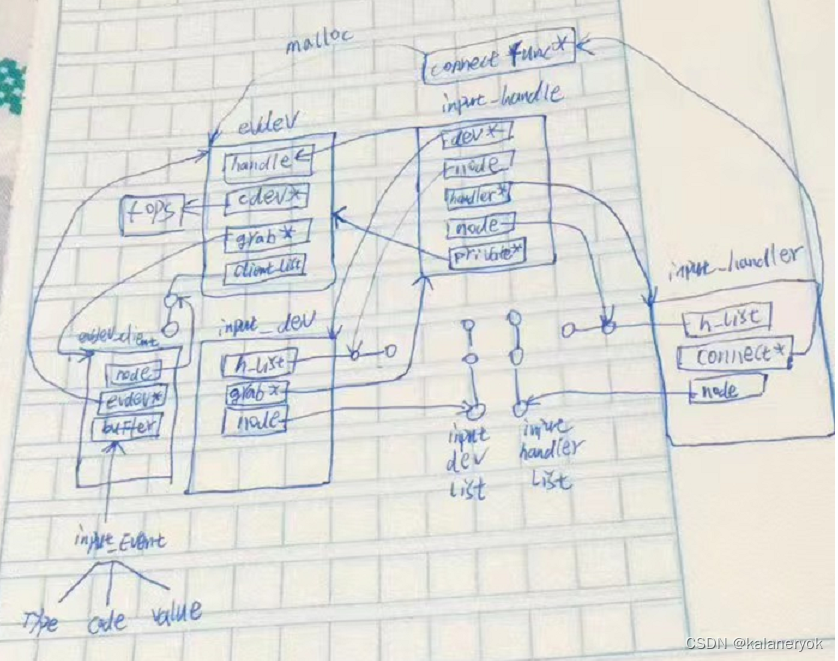 malloc
connect func*
evdev
handle
cdev*
grab*
client_list
fops
input_handle
dev*
node
handler*
node
private*
input_handler
h_list
connect*
node
evdev_client
node
evdev*
buffer
input_dev
h_list
grab*
node
input
dev
list
input
handler
list
input_Event
Type code value
CSDN @kalaneryok